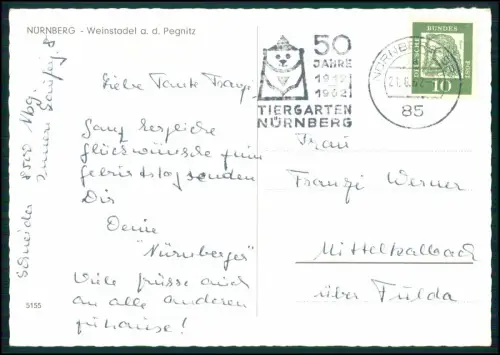 NÜRNBERG - Weinstadel a. d. Pegnitz
Schneider 8500 Nbg.
Innere
Liebe Tante Franzi,
Ganz herzliche
Glückwünsche zum
Geburtstag senden
Dir
Deine
"Nürnberger"
Viele Grüsse auch
an alle anderen
zuhause!
5155
50
JAHRE
1912
1962
TIERGARTEN
NÜRNBERG
NÜRNBERG
85
DEUTSCHE
BUNDES
POST
10
Frau
Franzi Werner
Mittelkalbach
über Fulda